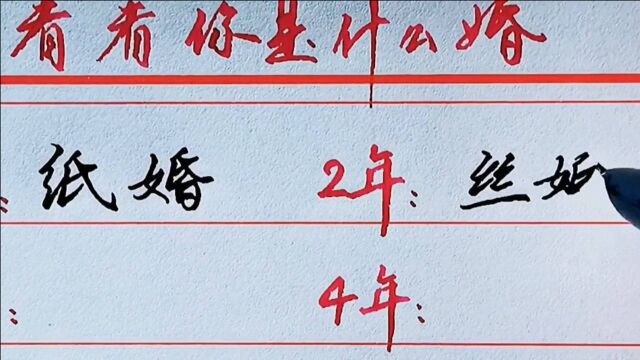 看看你是什么婚
: 纸婚 2年: 丝
: 4年: